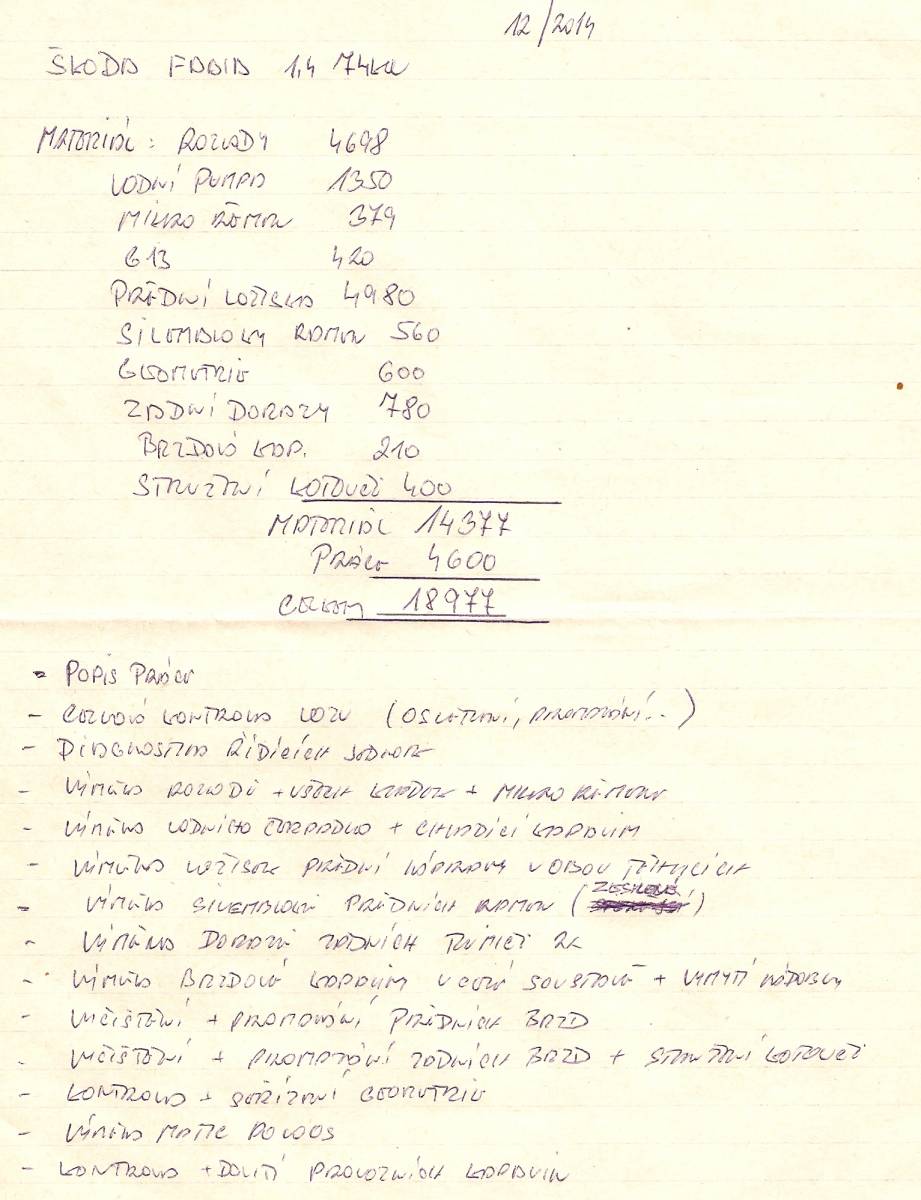 12/2014
ŠKODA FABIA 1,4 74kW
MATERIÁL: ROZVODY 4698
VODNÍ PUMPA 1350
MIKRO ŘEMEN 379
G13 420
PŘEDNÍ LOŽISKA 4980
SILEMBLOKY RAMEN 560
GEOMETRIE 600
ZADNÍ DORAZY 780
BRZDOVÁ KAP. 210
STRUŽENÍ KOTOUČŮ 400
MATERIÁL 14377
PRÁCE 4600
CELKEM 18977
- POPIS PRÁCE
- CELKOVÁ KONTROLA VOZU (OSVĚTLENÍ, PROMAZÁNÍ..)
- DIAGNOSTIKA ŘÍDÍCÍCH JEDNOTEK
- VÝMĚNA ROZVODŮ + VŠECH KLADEK + MIKRO ŘEMENU
- VÝMĚNA VODNÍHO ČERPADLA + CHLADÍCÍ KAPALINY
- VÝMĚNA LOŽISEK PŘEDNÍ NÁPRAVY V OBOU TĚHLICÍCH
- VÝMĚNA SILEMBLOKŮ PŘEDNÍCH RAMEN (ZESÍLENÉ)
- VÝMĚNA DORAZŮ ZADNÍCH TLUMIČŮ 2x
- VÝMĚNA BRZDOVÉ KAPALINY V CELÉ SOUSTAVĚ + VYMYTÍ NÁDOBKY
- VYČIŠTĚNÍ + PROMAZÁNÍ PŘEDNÍCH BRZD
- VYČIŠTĚNÍ + PROMAZÁNÍ ZADNÍCH BRZD + STRUŽENÍ KOTOUČŮ
- KONTROLA + SEŘÍZENÍ GEOMETRIE
- VÝMĚNA MATIC POLOOS
- KONTROLA + DOLITÍ PROVOZNÍCH KAPALIN